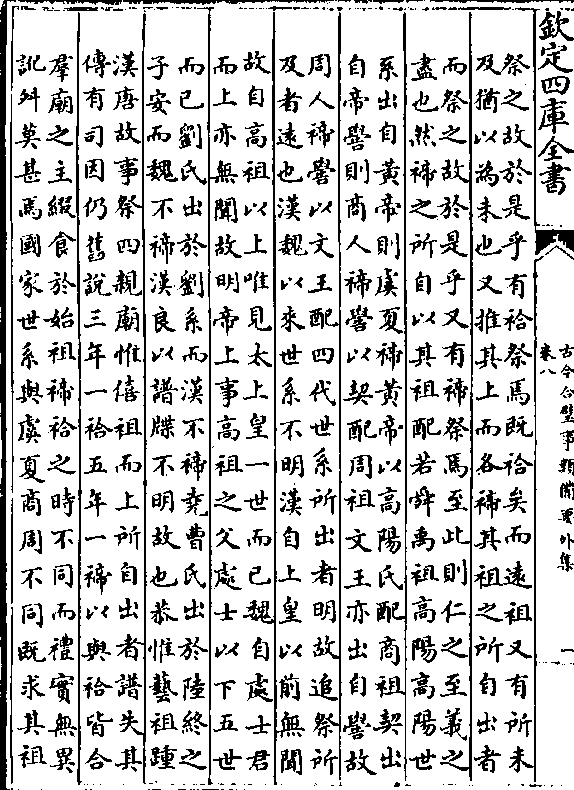 欽定四庫全書
古今合璧事類備要外集
卷八
一
祭之故於是乎有祫祭焉既祫矣而遠祖又有所未
及猶以為未也又推其上而各禘其祖之所自出者
而祭之故於是乎又有禘祭焉至此則仁之至義之
盡也然禘之所自以其祖配若舜禹祖高陽高陽世
系出自黃帝則虞夏禘黃帝以高陽氏配商祖契出
自帝嚳則商人禘嚳以契配周祖文王亦出自嚳故
周人禘嚳以文王配四代世系所出者明故追祭所
及者遠也漢魏以來世系不明漢自上皇以前無聞
故自高祖以上唯見太上皇一世而已魏自處士君
而上亦無聞故明帝上事高祖之父處士以下五世
而已劉氏出於劉系而漢不禘堯曹氏出於陸終之
子安而魏不禘漢良以譜牒不明故也恭惟藝祖踵
漢唐故事祭四親廟惟僖祖而上所自出者譜失其
傳有司因仍舊說三年一祫五年一禘以與祫皆合
羣廟之主綴食於始祖禘祫之時不同而禮實無異
訛舛莫甚焉國家世系與虞夏商周不同既求其祖